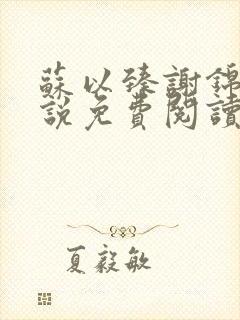 蘇以臻謝錦
說免費閱讀
夏毅敏